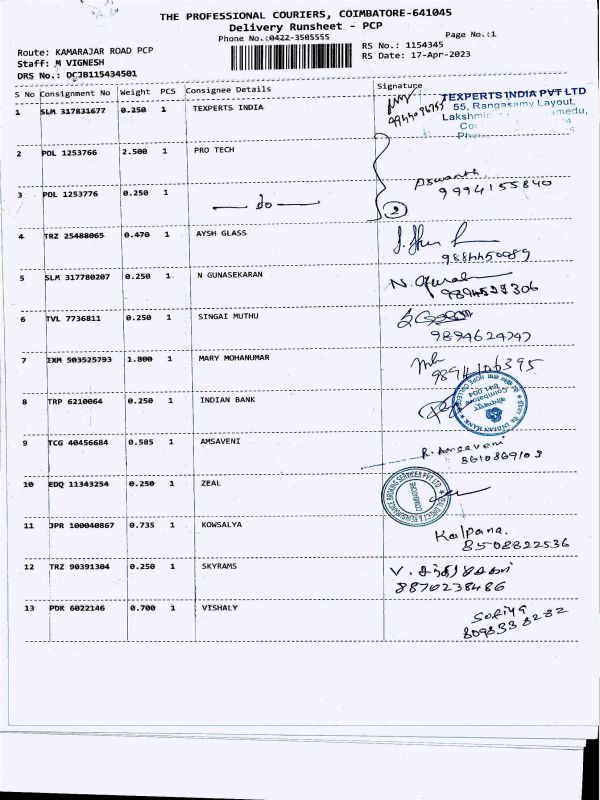 THE PROFESSIONAL COURIERS, COIMBATORE-641045
Delivery Runsheet - PCP
Phone No.:0422-3505555
Page No.:1
Route: KAMARAJAR ROAD PCP
RS No.: 1154345
Staff: M VIGNESH
RS Date: 17-Apr-2023
DRS No.: DCJB115434501
S No Consignment No Weight PCS Consignee Details Signature
1 SLM 317831677 0.250 1 TEXPERTS INDIA
TEXPERTS INDIA PVT LTD
55, Rangasamy Layout,
2 POL 1253766 2.500 1 PRO TECH
3 POL 1253776 0.250 1 do 2
Aswanth
9994155840
4 TRZ 25488065 0.470 1 AYSH GLASS
9884450989
5 SLM 317780207 0.250 1 N GUNASEKARAN
6 TVL 7736811 0.250 1 SINGAI MUTHU
7 IXM 503525793 1.800 1 MARY MOHANUMAR
8 TRP 6210064 0.250 1 INDIAN BANK
INDIAN BANK
9 TCG 40456684 0.585 1 AMSAVENI
R. Amsaveni
8610869103
10 EDQ 11343254 0.250 1 ZEAL
COIMBATORE
11 JPR 100040867 0.735 1 KOWSALYA
Kalpana.
8508822536
12 TRZ 90391304 0.250 1 SKYRAMS
8870238486
13 PDK 6022146 0.700 1 VISHALY
Sofiya
8098338232